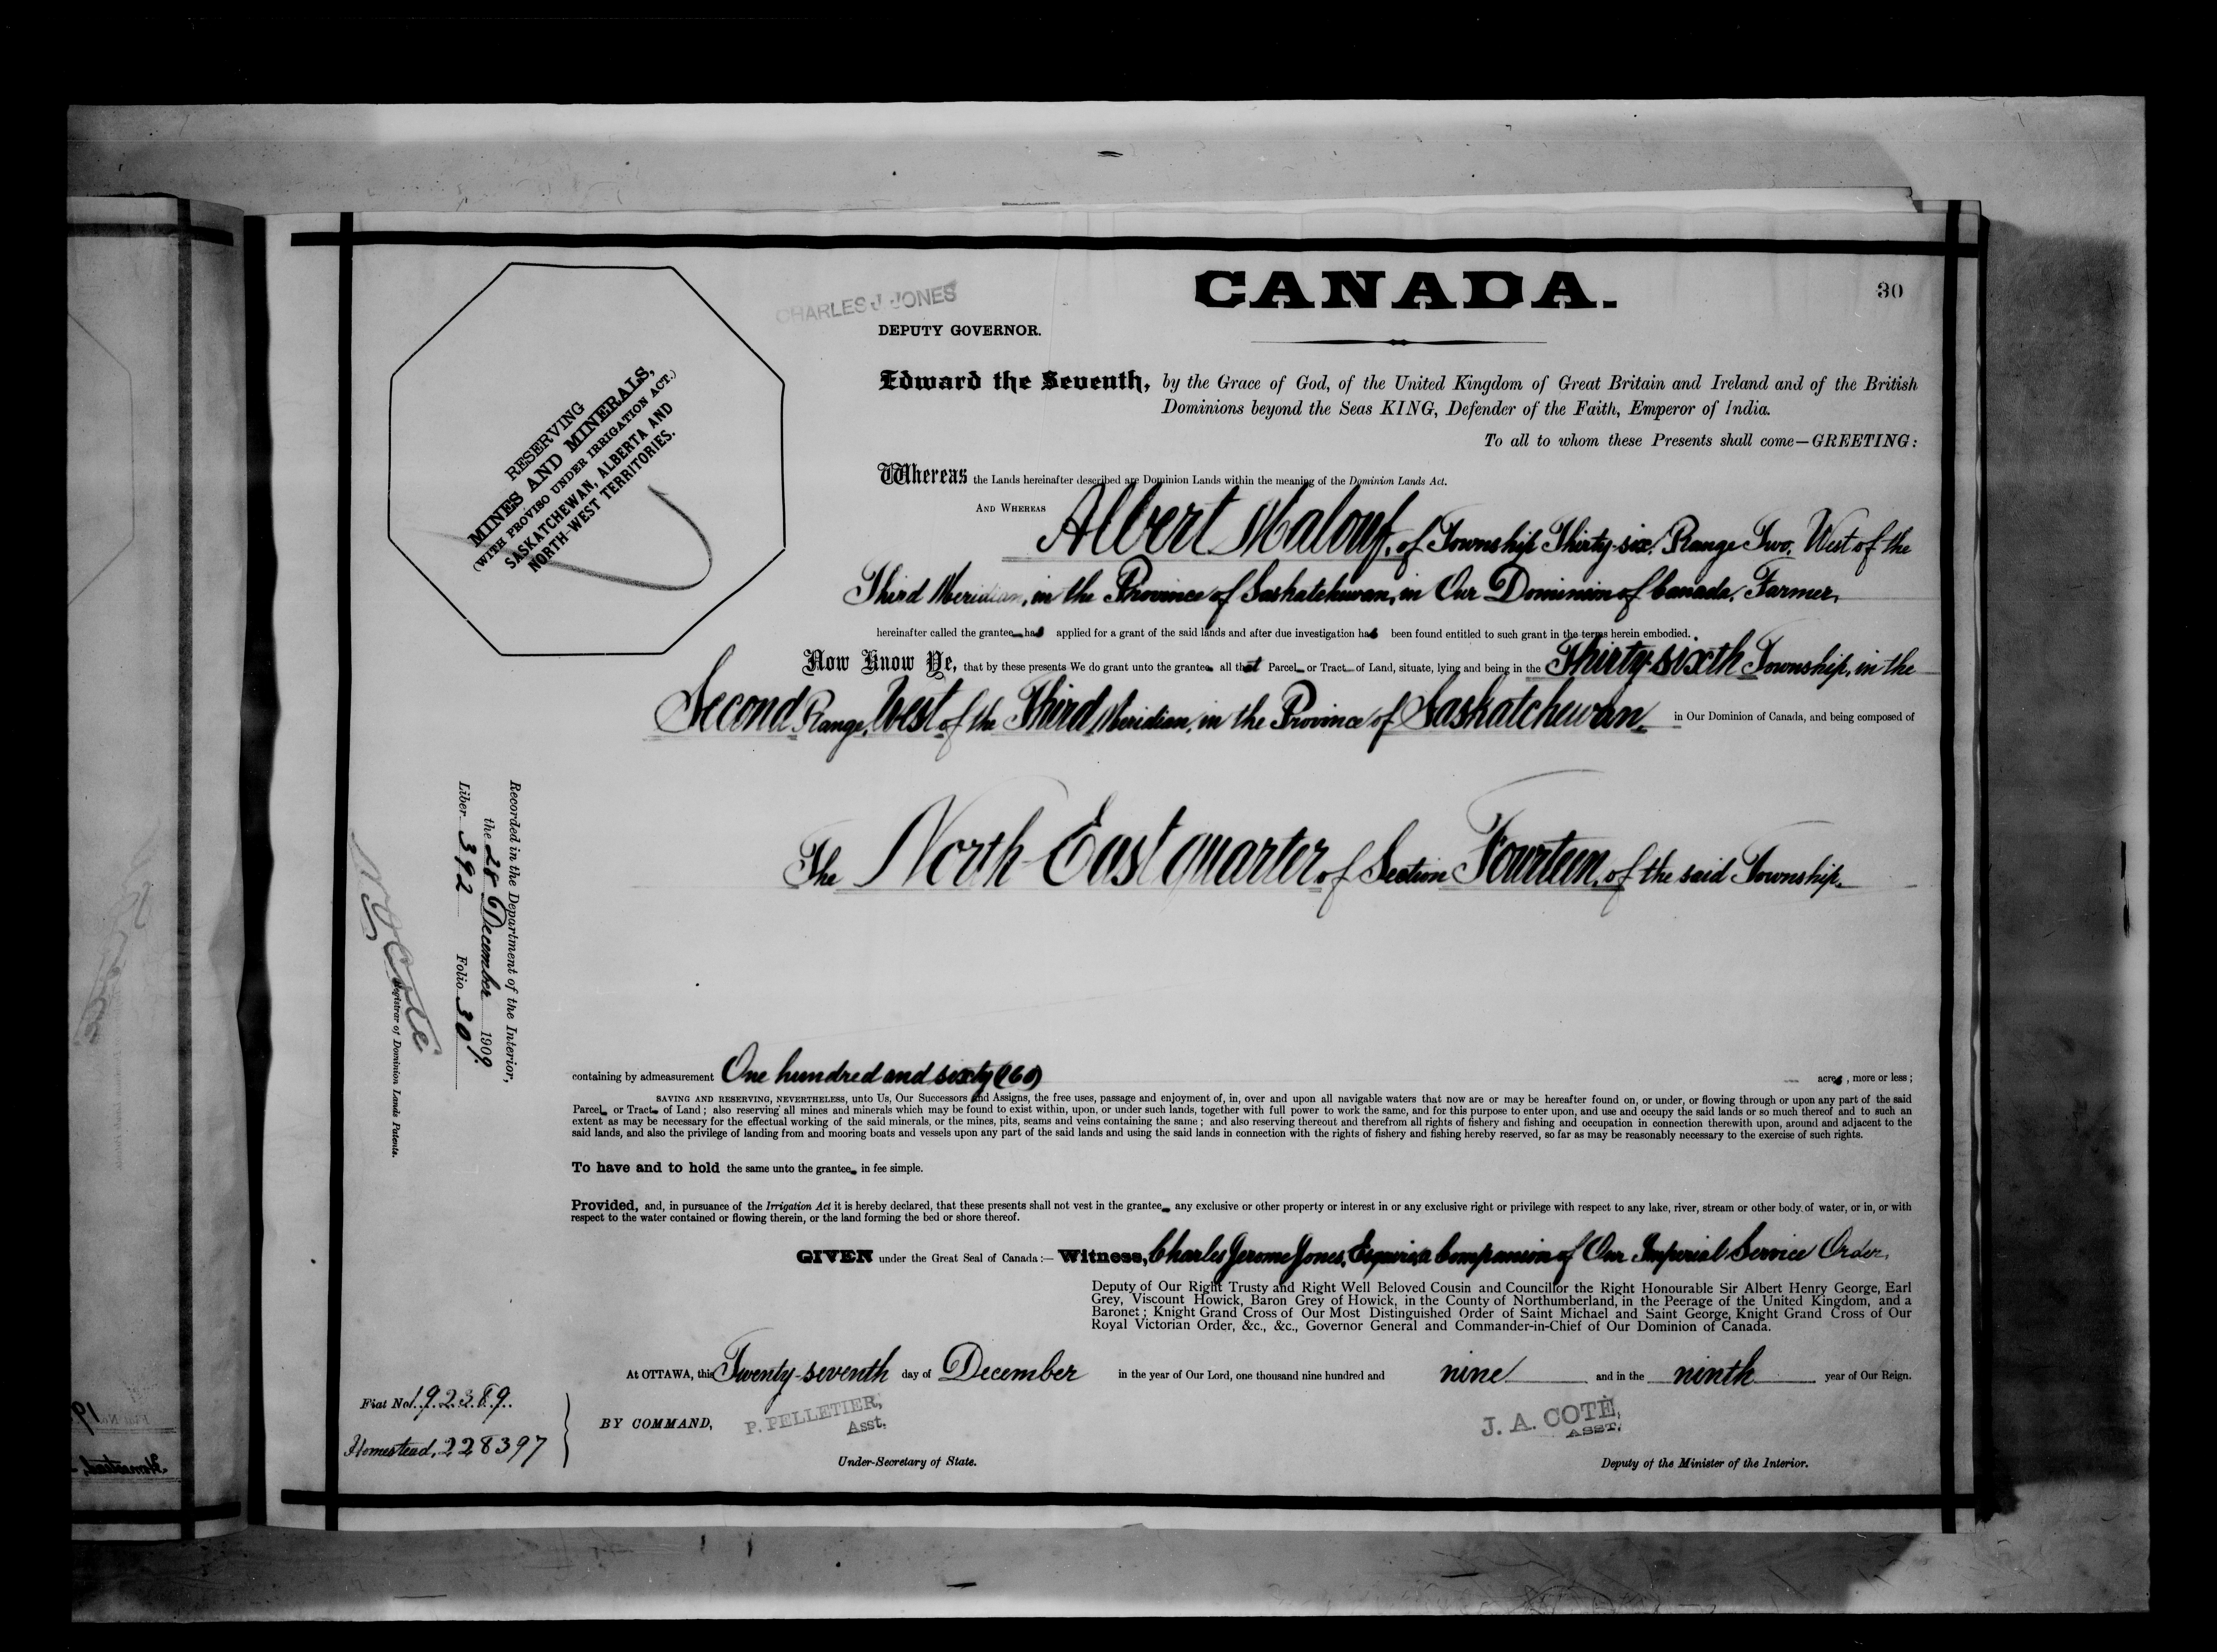 CANADA.
30
CHARLES J. JONES
DEPUTY GOVERNOR.
RESERVING
MINES AND MINERALS,
(WITH PROVISO UNDER IRRIGATION ACT.)
SASKATCHEWAN, ALBERTA AND
NORTH-WEST TERRITORIES.
Edward the Seventh, by the Grace of God, of the United Kingdom of Great Britain and Ireland and of the British
Dominions beyond the Seas KING, Defender of the Faith, Emperor of India.
To all to whom these Presents shall come—GREETING:
Whereas the Lands hereinafter described are Dominion Lands within the meaning of the Dominion Lands Act.
AND WHEREAS Albert Malouf, of Township Thirty-six, Range Two, West of the
Third Meridian, in the Province of Saskatchewan, in Our Dominion of Canada, Farmer,
hereinafter called the grantee has applied for a grant of the said lands and after due investigation has been found entitled to such grant in the terms herein embodied.
Now Know Ye, that by these presents We do grant unto the grantee all that Parcel or Tract of Land, situate, lying and being in the Thirty-sixth Township, in the
Second Range, West of the Third Meridian, in the Province of Saskatchewan, in Our Dominion of Canada, and being composed of
The North East quarter of Section Fourteen, of the said Township.
Recorded in the Department of the Interior,
the 28 December 1909.
Liber 392 Folio 30
Registrar of Dominion Lands Patents.
containing by admeasurement One hundred and sixty (160) acres, more or less;
SAVING AND RESERVING, NEVERTHELESS, unto Us, Our Successors and Assigns, the free uses, passage and enjoyment of, in, over and upon all navigable waters that now are or may be hereafter found on, or under, or flowing through or upon any part of the said
Parcel or Tract of Land; also reserving all mines and minerals which may be found to exist within, upon, or under such lands, together with full power to work the same, and for this purpose to enter upon, and use and occupy the said lands or so much thereof and to such an
extent as may be necessary for the effectual working of the said minerals, or the mines, pits, seams and veins containing the same; and also reserving thereout and therefrom all rights of fishery and fishing and occupation in connection therewith upon, around and adjacent to the
said lands, and also the privilege of landing from and mooring boats and vessels upon any part of the said lands and using the said lands in connection with the rights of fishery and fishing hereby reserved, so far as may be reasonably necessary to the exercise of such rights.
To have and to hold the same unto the grantee in fee simple.
Provided, and, in pursuance of the Irrigation Act it is hereby declared, that these presents shall not vest in the grantee any exclusive or other property or interest in or any exclusive right or privilege with respect to any lake, river, stream or other body of water, or in, or with
respect to the water contained or flowing therein, or the land forming the bed or shore thereof.
GIVEN under the Great Seal of Canada:— Witness, Charles Jerome Jones, Esquire, a Companion of Our Imperial Service Order,
Deputy of Our Right Trusty and Right Well Beloved Cousin and Councillor the Right Honourable Sir Albert Henry George, Earl
Grey, Viscount Howick, Baron Grey of Howick, in the County of Northumberland, in the Peerage of the United Kingdom, and a
Baronet; Knight Grand Cross of Our Most Distinguished Order of Saint Michael and Saint George, Knight Grand Cross of Our
Royal Victorian Order, &c., &c., Governor General and Commander-in-Chief of Our Dominion of Canada.
At OTTAWA, this Twenty-seventh day of December in the year of Our Lord, one thousand nine hundred and nine and in the ninth year of Our Reign.
Fiat No. 192389.
Homestead, 228397
BY COMMAND, P. PELLETIER,
Asst.
Under-Secretary of State.
J. A. COTÉ,
ASST.
Deputy of the Minister of the Interior.